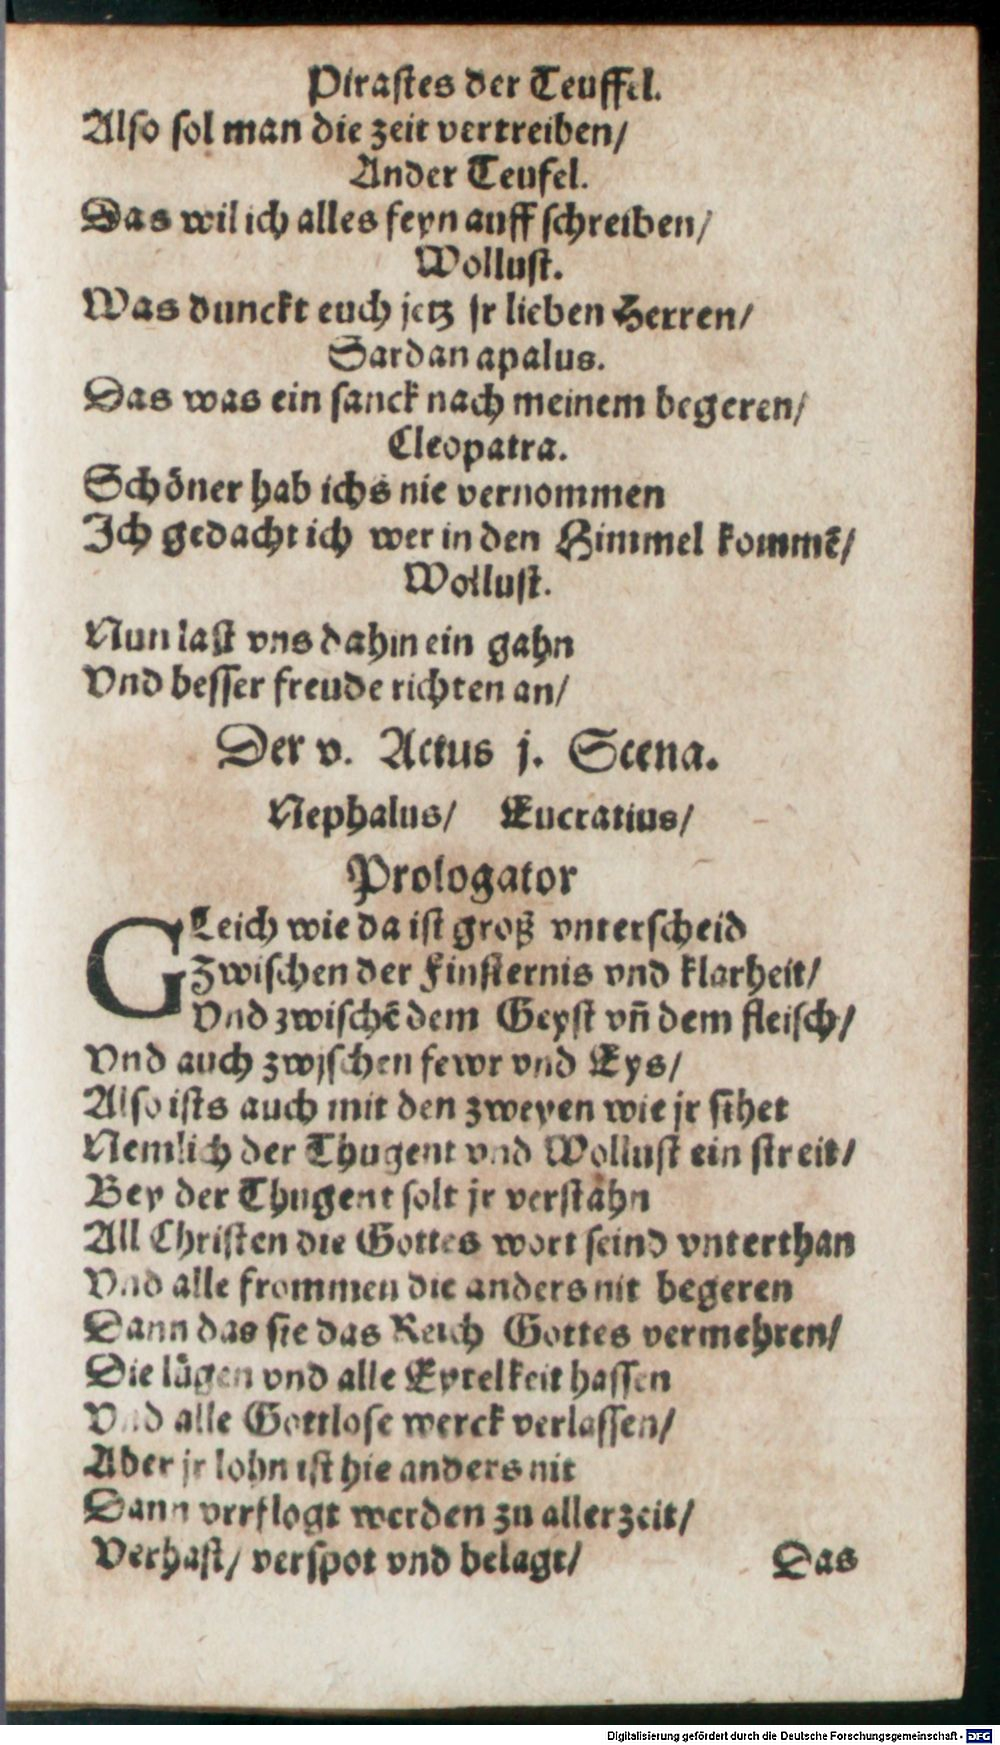 Pirastes der Teuffel.
Also sol man die zeit vertreiben/
Ander Teufel.
Das wil ich alles feyn auff schreiben/
Wollust.
Was dunckt euch jetz jr lieben Herren/
Sardan apalus.
Das was ein sanck nach meinem begeren/
Cleopatra.
Schöner hab ichs nie vernommen
Ich gedacht ich wer in den Himmel kommē/
Wollust.
Nun last vns dahin ein gahn
Vnd besser freude richten an/
Der v. Actus j. Scena.
Nephalus/ Eucratius/
Prologator
GLeich wie da ist groß vnterscheid
Zwischen der Finsternis vnd klarheit/
Vnd zwischē dem Geyst vñ dem fleisch/
Vnd auch zwjschen fewr vnd Eys/
Also ists auch mit den zweyen wie jr sihet
Nemlich der Thugent vnd Wollust ein streit/
Bey der Thugent solt jr verstahn
All Christen die Gottes wort seind vnterthan
Vnd alle frommen die anders nit begeren
Dann das sie das Reich Gottes vermehren/
Die lügen vnd alle Eytelkeit hassen
Vnd alle Gottlose werck verlassen/
Aber jr lohn ist hie anders nit
Dann verflogt werden zu aller zeit/
Verhast/ verspot vnd belagt/
Das
Digitalisierung gefördert durch die Deutsche Forschungsgemeinschaft - DFG